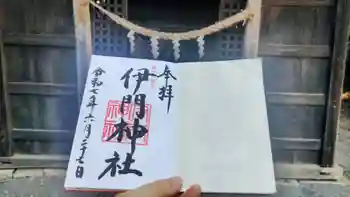 奉拝
伊門神社
令和七年六月二十七日